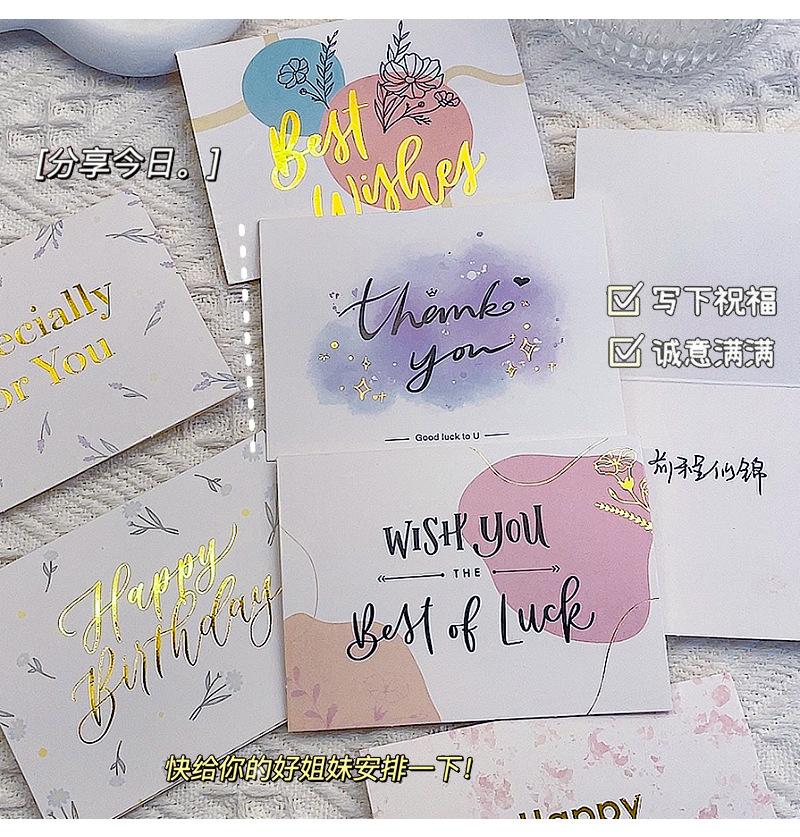 Best
Wishes
[分享今日。]
thank
you
Good luck to U
写下祝福
诚意满满
ecially
or You
前程似锦
WISH YOU
THE
Best of Luck
Happy
Birthday
快给你的好姐妹安排一下!
Happy